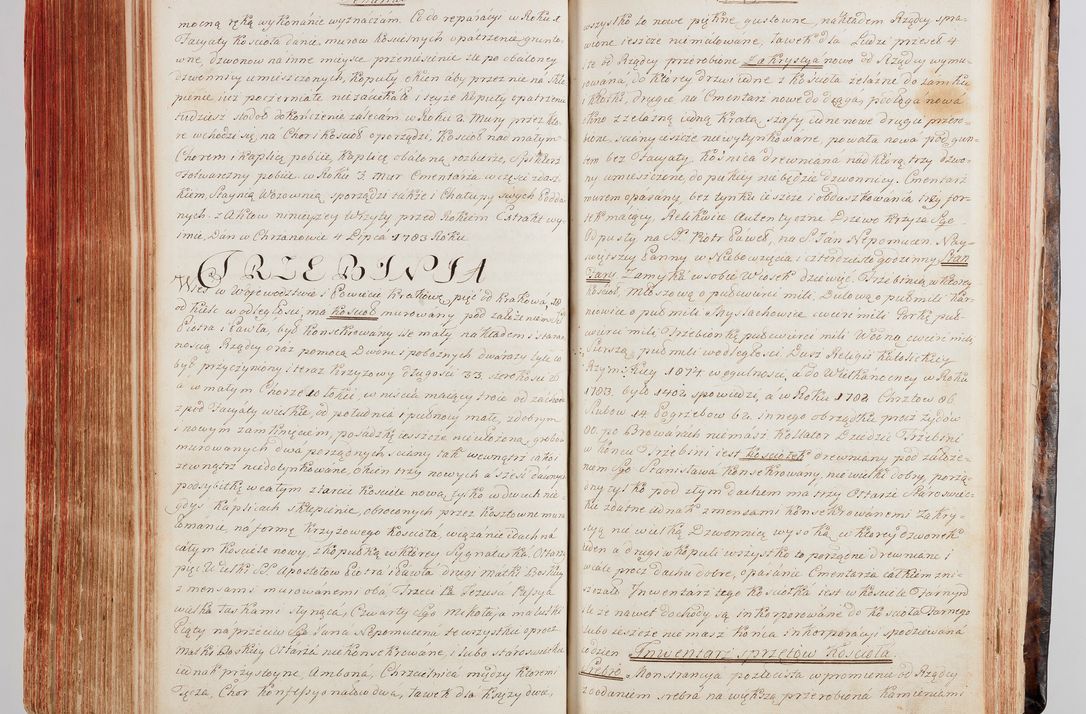 mocną ręką wykonanie wyznaczam. Co do reparacyi w Roku 1
Facyaty Kościoła danie, murow Kościelnych opatrzenie grunto-
wne, Dzwonow na inne mieysce przeniesienie ile po obaloney
dzwonnicy umieszczonych, Kopuły okien aby przez nie na skle-
pienie już poczerniałe nie zaciekało i teyże kopuły opatrzenie
tudziesz stodoł dokończenie zalecam w Roku 2. Mury przez kto-
re wchodzi się na Chor i Kościoł oporządzi, Kościoł nad małym
Chorem i Kaplicę pobiie, Kaplicę obaloną rozbierze, Spichlerz
Folwarczny pobiie, w Roku 3. mur Cmentarza w części z dasz-
kiem, Staynią Wozownią, sporządzi także i Chałupy swych Podda-
nych. z Aktow ninieyszey Wizyty przed Rokiem Extrakt wy-
imie, Dan w Chrzanowie 4 Lipca 1783 Roku
TRZEBINIA
Wieś w Woiewodztwie i Powiecie Krakows. pięć od Krakowa, 18
od Kielc w odległości, ma Kościoł murowany pod założeniem SS
Piotra i Pawła, był konsekrowany ale mały, nakładem i staran-
nością Rządcy oraz pomocą Dworu i pobożnych dwa razy tyle co
był przyczyniony i teraz krzyżowy długości 33. szerokości 18
a w małym Chorze 10 łokci, w mieście maiący troie od zachodu
z pod Facyaty wielkie, od południa i pułnocy małe, z dobrym
i nowym zamknięciem, posadzkę ieszcze nieułożoną, grobow
murowanych dwa porządnych, ściany tak wewnątrz iako i
zewnątrz niedotynkowane, Okien trzy nowych a sześć dawnych
podsybitkę w całym ztarcie Kościele nową, tylko w dwuch nie-
gdyś Kaplicach sklepienie, obroconych przez kosztowne mura
łamanie, na formę krzyżowego Kościoła, wiązanie i dach na
całym Kościele nowy, z kopułką w ktorey Sygnaturka. Ołtarzy
pięć Wielki SS. Apostołow Piotra i Pawła drugi Matki Boskiey
z mensami murowanemi oba, Trzeci Pa Jezusa Passya
wielka łaskami słynąca, Czwarty Sgo Mikołaja malutki
Piąty naprzeciw Sgo Jana Nepomucena te wszystkie oprocz
matki Boskiey Ołtarza nie konsekrowane, i lubo staroswieckie
iednak przystoyne, Ambona, Chrzcielnica między ktoremi
Tęcza, Chor konfessyonałow dwa, Ławek dla Xięży dwa,
wszystko to nowe piękne, gustowne, nakładem Rządcy spra-
wione ieszcze niemalowane, ławek dla Ludzi przeszł 4
i te od Rządcy przerobione. Zakrystya nowo od Rządcy wymu-
rowana, do ktorey drzwi iedne z Kościoła żelazne do zamku
i kłotki, drugie na Cmentarz nowe do drąga, podłoga nowa
okno z żelazną iedną kratą, szafy iedne nowe drugie przero-
bione, ściany ieszcze niewytynkowane, powała nowa pod gon-
tem bez Facyaty. Kośnica drewniana nad ktorą trzy dzwo-
ny umieszczone, do puki iey niebędzie dzwonnicy. Cmentarz
murem opasany, bez tynku ieszcze i obdaszkowania trzy for-
tek maiący, Relikwie Autentyczne Drzewo Krzyża Sgo
Odpusty na SS. Piotr Paweł, na S. Jan Nepomucen. Nay-
wyższey Panny w Niebowzięcia i czterdziesto godzinny Stan
Fary. Zamyka w sobie Wiosek dziewięć Trzebinią w ktorey
Kościoł, Młoszową o pułćwierci mili, Dulową o puł mili Kar-
niowice o puł mili Myślachowice ćwierć mili Porębę puł-
ćwierci mili Trzebionkę pułćwierci mili Wodną ćwierć mili
Sierszą puł mili w odległości. Dusz Religii katolickiey
Rzymskiey 1877. w ogulności, a do Wielkanocney w Roku
1783. było 1402. spowiedzi, a w Roku 1782 Chrztow 86
Slubow 14 Pogrzebow 62. Innego obrządku procz Zydow
80. po Browarach niemasz. Kollator Dziedzic Trzebini
w końcu Trzebini iest Kościołek drewniany pod założe-
niem Sgo Stanisława konsekrowany, niewielki dobry, porzą-
dny tylko pod złym dachem ma trzy Ołtarze Staroswiec-
kie zdatne iednak z mensami konsekrowanemi. Zakry-
styą nie wielką Dzwonnicą wysoką w ktorey dzwonek
ieden a drugi w kopuli wszystko to porządne drewniane i
wcale procz dachu dobre, opasanie Cmentarza całkiem zni-
szczało Inwentarz tego Kościołka iest w Kościele Farnym
ile że nawet dochody są inkorporowane do Kościoła Farnego
lubo ieszcze niemasz końca inkorporacyi spodziewana
codzien. Inwentarz sprzętow Kościoła
Srebro. Monstrancya pozłocista w promienie od Rządcy
z dodaniem srebra na większą przerobiona kamieniami